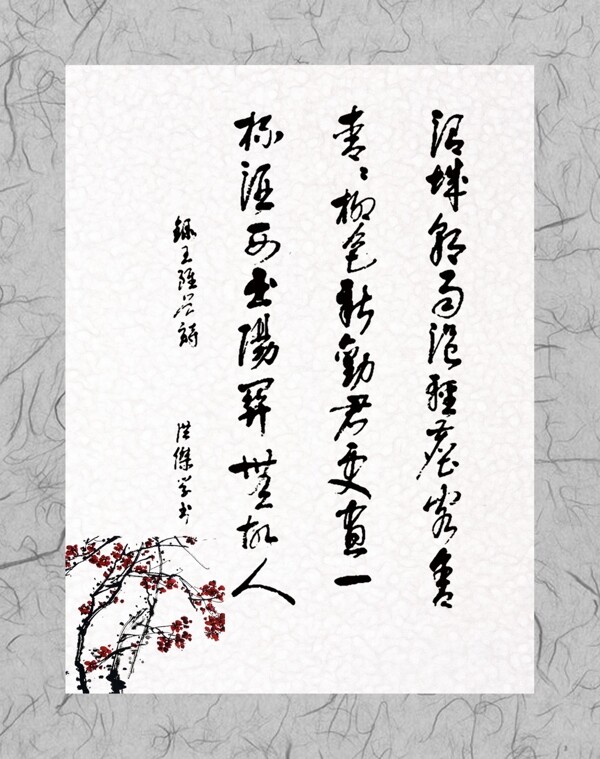 渭城朝雨浥輕塵客舍
青〻柳色新勸君更盡一
杯酒西出陽關無故人
錄王維詩
洪傑学书